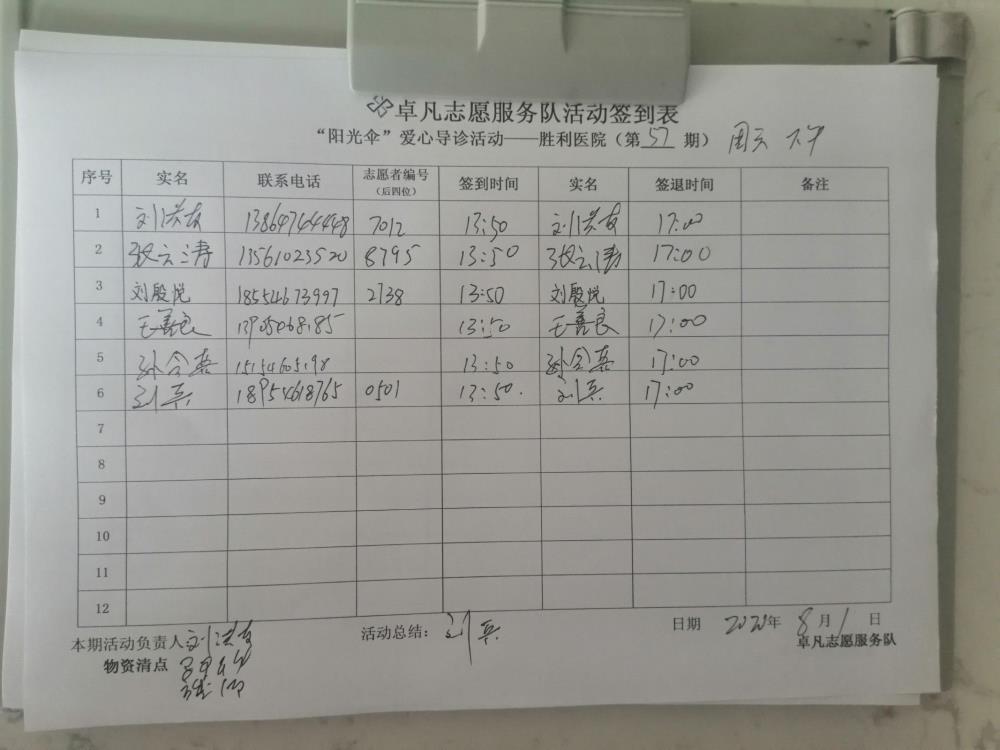 卓凡志愿服务队活动签到表
“阳光伞”爱心导诊活动——胜利医院（第 57 期） 下午
序号 实名 联系电话 志愿者编号（后四位） 签到时间 实名 签退时间 备注
1 刘洪友 13864744448 7012 13:50 刘洪友 17:00
2 张云涛 13561023520 8795 13:50 张云涛 17:00
3 刘殷悦 18554673997 2738 13:50 刘殷悦 17:00
4 王善良 13905468185 13:50 王善良 17:00
5 孙合英 13:50 孙合英 17:00
6 刘兵 18954618765 0501 13:50. 刘兵 17:00
7
8
9
10
11
12
本期活动负责人 刘洪友 活动总结： 刘兵 日期 2020年 8月 1日
物资清点 卓凡志愿服务队